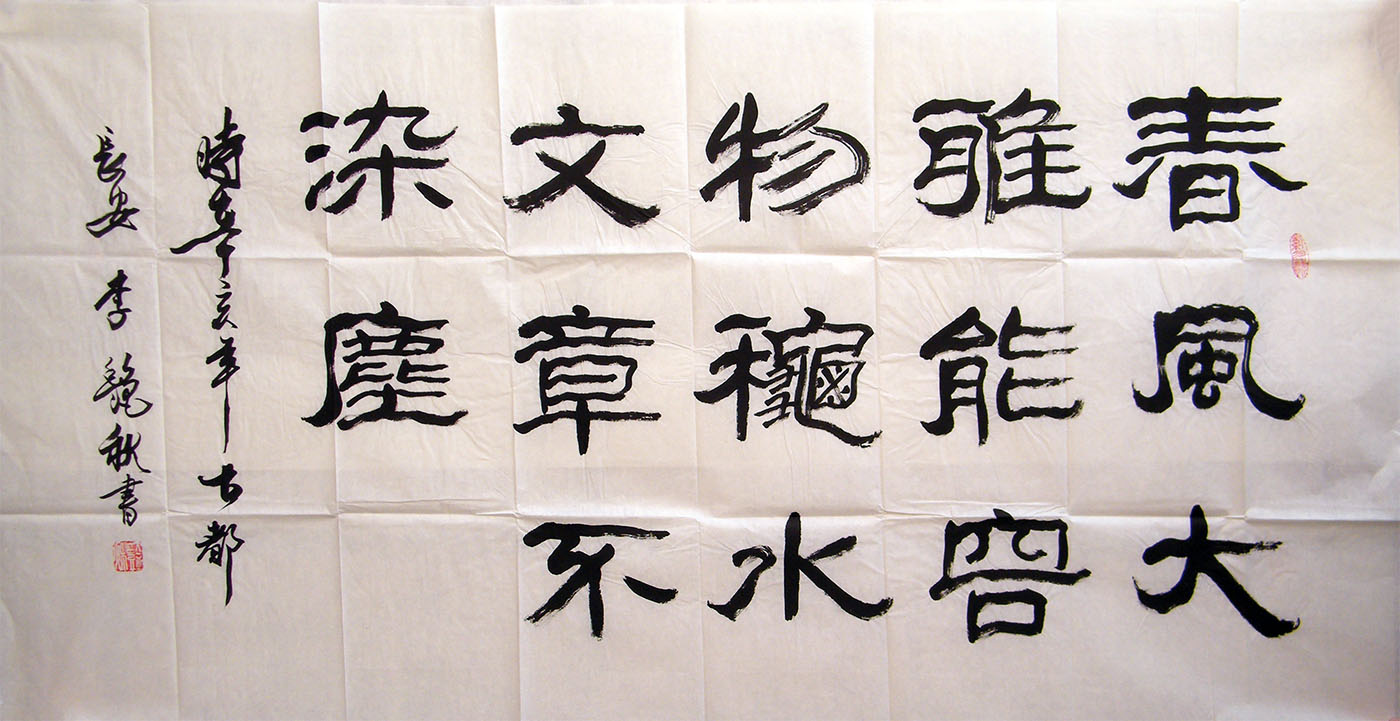 春風大
雅能容
物龝水
文章不
染塵
時在辛亥年古都
長安李秋書